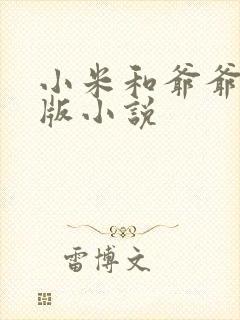 小米和爷爷
版小说
雷博文